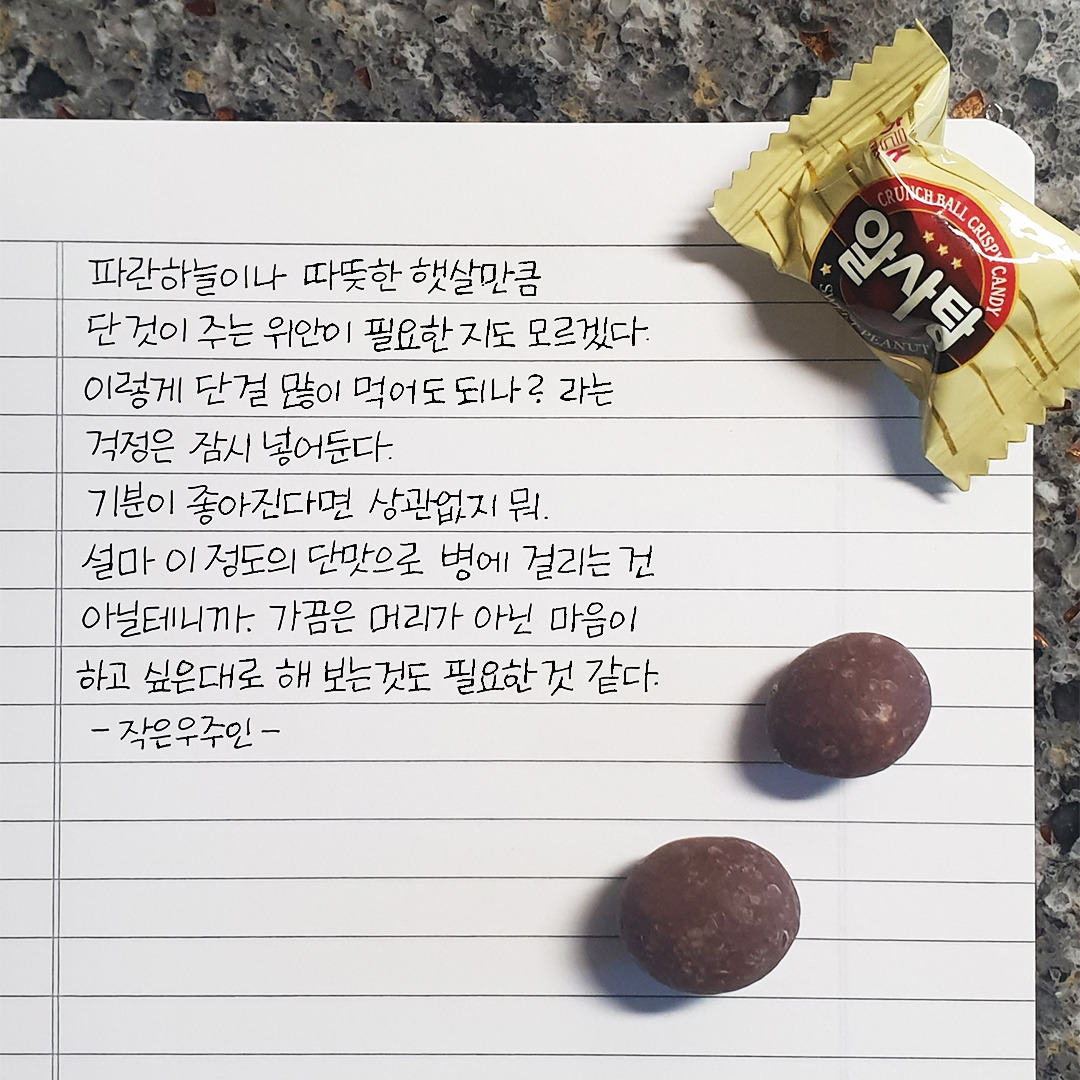 CRUNCH BALL CRISPY CANDY
알사탕
파란하늘이나 따뜻한 햇살만큼
단 것이 주는 위안이 필요한 지도 모르겠다.
이렇게 단걸 많이 먹어도 되나? 라는
걱정은 잠시 넣어둔다.
기분이 좋아진다면 상관없지 뭐.
설마 이 정도의 단맛으로 병에 걸리는 건
아닐테니까. 가끔은 머리가 아닌 마음이
하고 싶은대로 해 보는것도 필요한 것 같다.
- 작은우주인 -